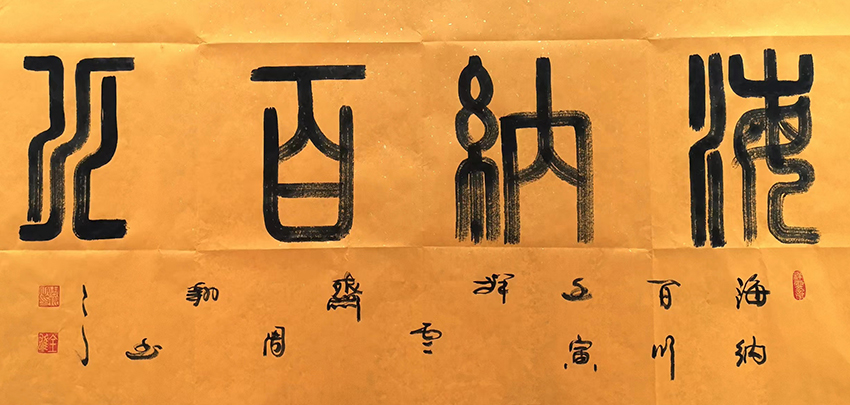 海納百川
海納
百川
壬寅
祥雲
齋周
翔书